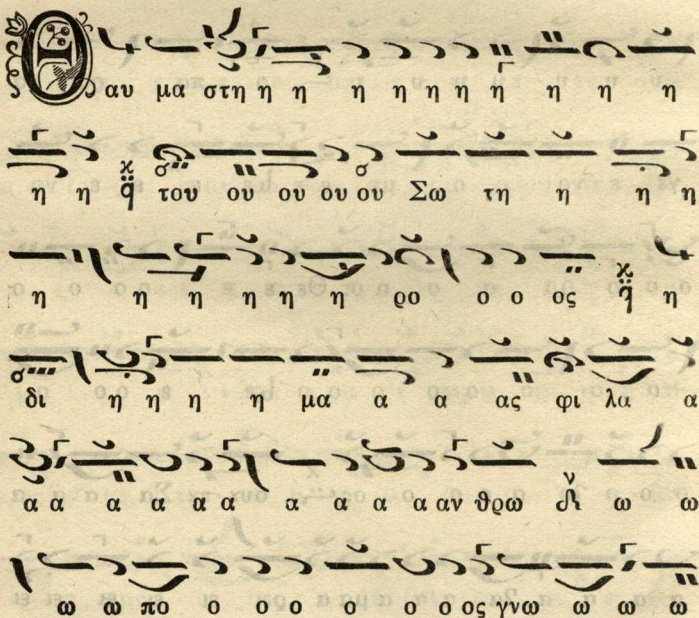 Θ αυ μα στη η η η η η η η η η η
η η κ̈ϥ του ου ου ου ου Σω τη η η η
η η η η η η ρο ο ο ος κ̈ϥ η
δι η η η η μα α α ας φι λα α
α α α α α α α α α α αν θρω ν ω ω
ω ω πο ο ο ο ο ο ο ος γνω ω ω ω